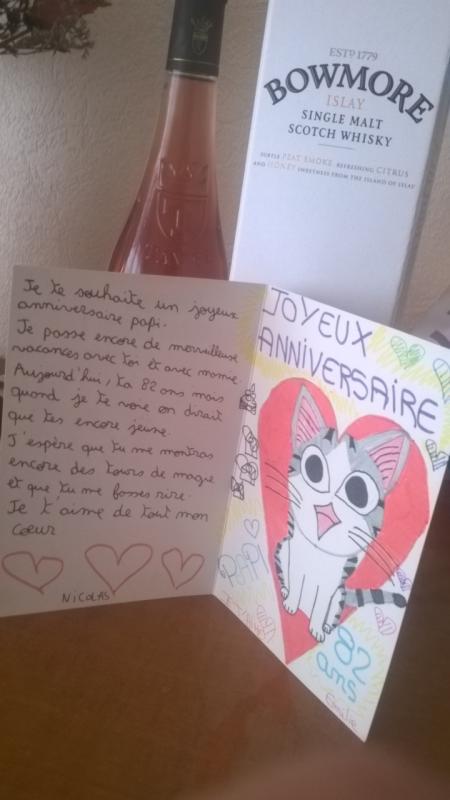 ESTD 1779
BOWMORE
ISLAY
SINGLE MALT
SCOTCH WHISKY
SUBTLE PEAT SMOKE, REFRESHING CITRUS
AND HONEY SWEETNESS FROM THE ISLAND OF ISLAY
Je te souhaite un joyeux
anniversaire papi.
Je passe encore de merveilleuse
vacances avec toi et avec mamie.
Aujourd'hui, ta 82 ans mais
quand je te voie on dirait
que tes encore jeune.
J'espère que tu me montras
encore des tours de magie
et que tu me fasses rire.
Je t'aime de tout mon
cœur
NICOLAS
JOYEUX
ANNIVERSAIRE
PAPI
82
ans
Emilie